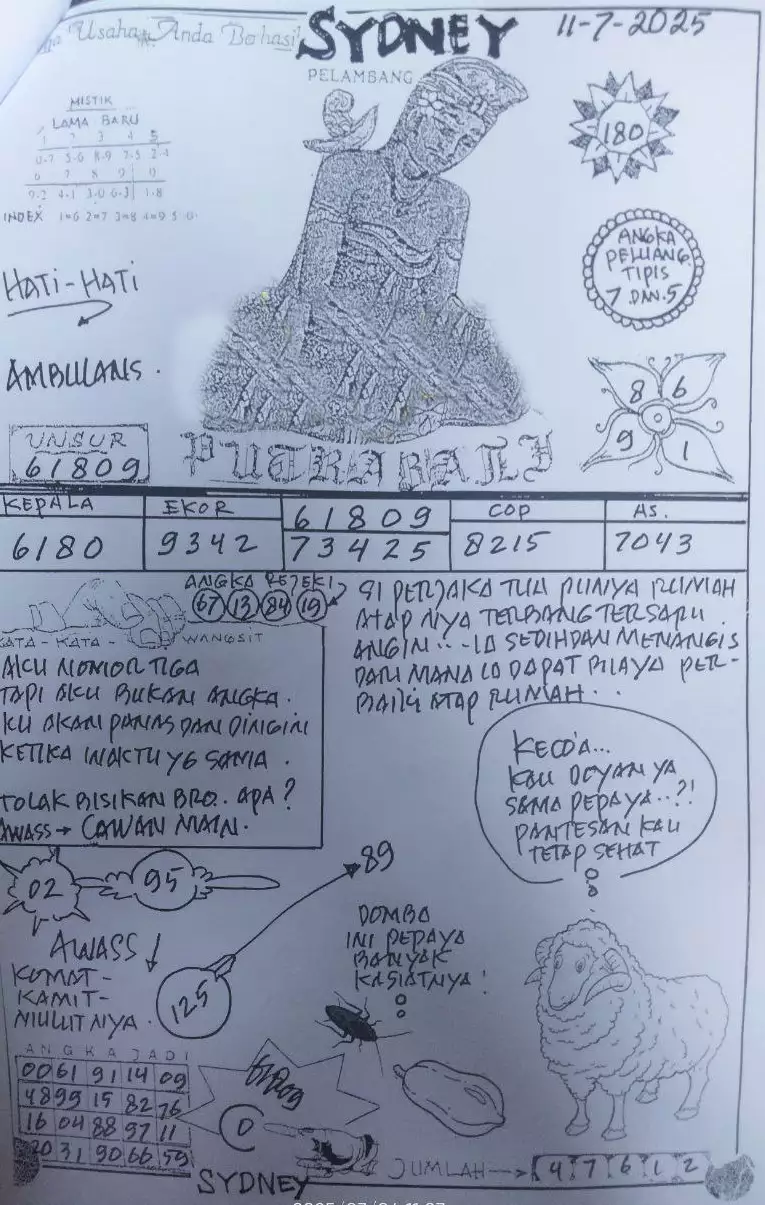 Usaha Anda Berhasil
SYDNEY
11-7-2025
PELAMBANG
MISTIK
LAMA BARU
1 2 3 4 5
0-7 5-6 8-9 2-5 2-4
6 7 8 9 0
9-2 4-1 3-0 6-3 1-8
INDEX 1=6 2=7 3=8 4=9 5=0
180
ANGKA
PELUANG
TIPIS
7 DAN 5
HATI-HATI
AMBULANS.
8 6
9 1
UNSUR
61809
PUTRA BALI
KEPALA
6180
EKOR
9342
61809
73425
COP
8215
AS.
7043
ANGKA REJEKI
67 13 84 19
KATA-KATA-WANGSIT
AKU NOMOR TIGA
TAPI AKU BUKAN ANGKA.
KU AKAN PANAS DAN DINGIN
KETIKA WAKTU YG SAMA.
TOLAK BISIKAN BRO. APA?
AWASS → CAWAN MAIN.
SI PERJAKA TUA PUNYA RUMAH
ATAP NYA TERBANG TERSAPU
ANGIN... IA SEDIH DAN MENANGIS
DARI MANA IA DAPAT BIAYA PER-
BAIKI ATAP RUMAH...
KECO'A...
KAU DOYAN YA
SAMA PEPAYA..?!
PANTESAN KAU
TETAP SEHAT
02
95
89
AWASS
KOMAT-
KAMIT-
MULUTNYA.
125
DOMBA
INI PEPAYA
BANYAK
KASIATNYA!
ANGKA JADI
0061 91 14 09
4899 15 82 76
16 04 88 97 11
20 31 90 66 59
61809
0
SYDNEY
JUMLAH → 4 7 6 1 2